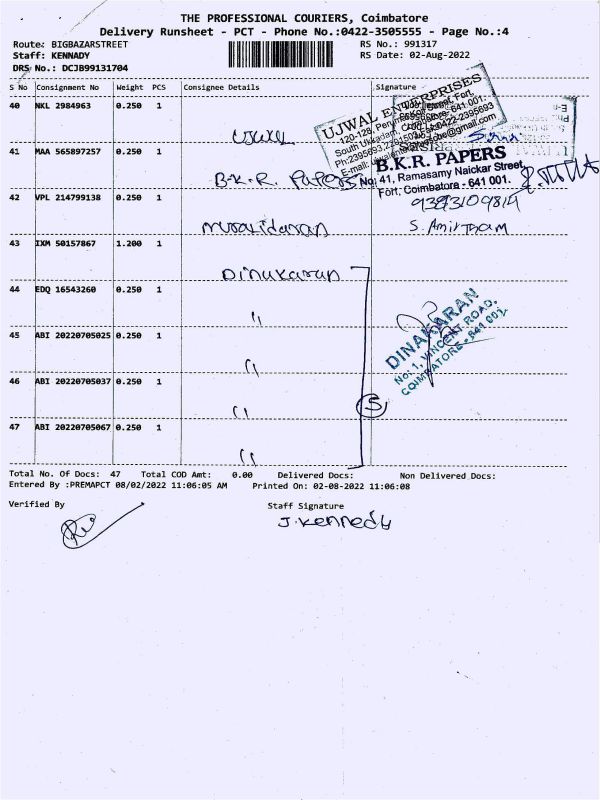 THE PROFESSIONAL COURIERS, Coimbatore
Delivery Runsheet - PCT - Phone No.:0422-3505555 - Page No.:4
Route: BIGBAZARSTREET RS No.: 991317
Staff: KENNADY RS Date: 02-Aug-2022
DRS No.: DCJB99131704
S No Consignment No Weight PCS Consignee Details Signature
40 NKL 2984963 0.250 1
UJWAL ENTERPRISES
120-128,
South Ukkadam,
Ph:2395693,
E-mail:
41 MAA 565897257 0.250 1
B.K.R. Papers
B.K.R. PAPERS
No: 41, Ramasamy Naickar Street,
Fort, Coimbatore - 641 001.
42 VPL 214799138 0.250 1
9383109814
muralidaran S. Amirtham
43 IXM 50157867 1.200 1
Dinukaran
44 EDQ 16543260 0.250 1
"
DINAKARAN
No: 1, VINCENT ROAD,
COIMBATORE - 641 001.
45 ABI 20220705025 0.250 1
"
46 ABI 20220705037 0.250 1
" 5
47 ABI 20220705067 0.250 1
"
Total No. Of Docs: 47 Total COD Amt: 0.00 Delivered Docs: Non Delivered Docs:
Entered By :PREMAPCT 08/02/2022 11:06:05 AM Printed On: 02-08-2022 11:06:08
Verified By Staff Signature
J. Kennedy